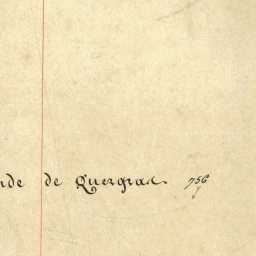 nde de Quergrax. 756